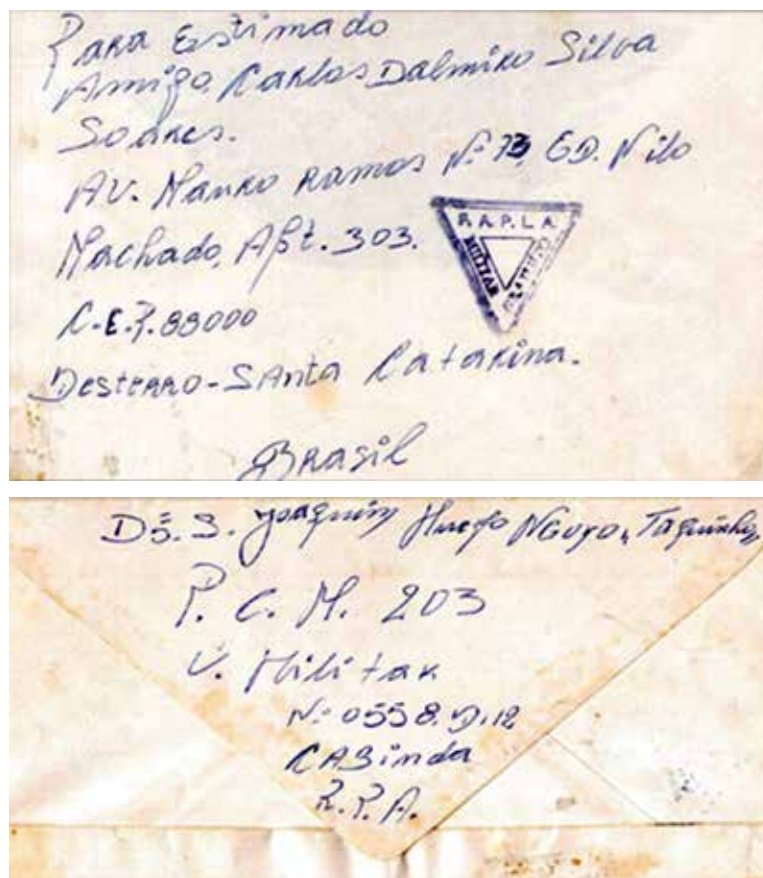 Para Estimado
Amigo Carlos Dalmiro Silva
Soares.
AV. Mauro Ramos Nº 73, ED. Nilo
Machado, Apt. 303.
F.A.P.L.A.
MILITAR
C.E.P. 88000
Desterro-SAnta Catarina.
BRASil
Joaquim NGoyo, Taquinho,
P. C. M. 203
U. Militar
Nº 0558.D.12
CABinda
R.P.A.